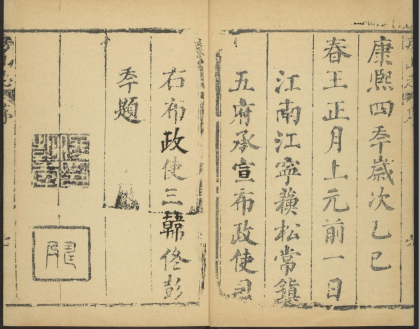 康熙四秊歲次乙巳
春王正月上元前一日
江南江寧蘓松常鎮
五府承宣布政使司
右布政使三韓佟彭
秊題